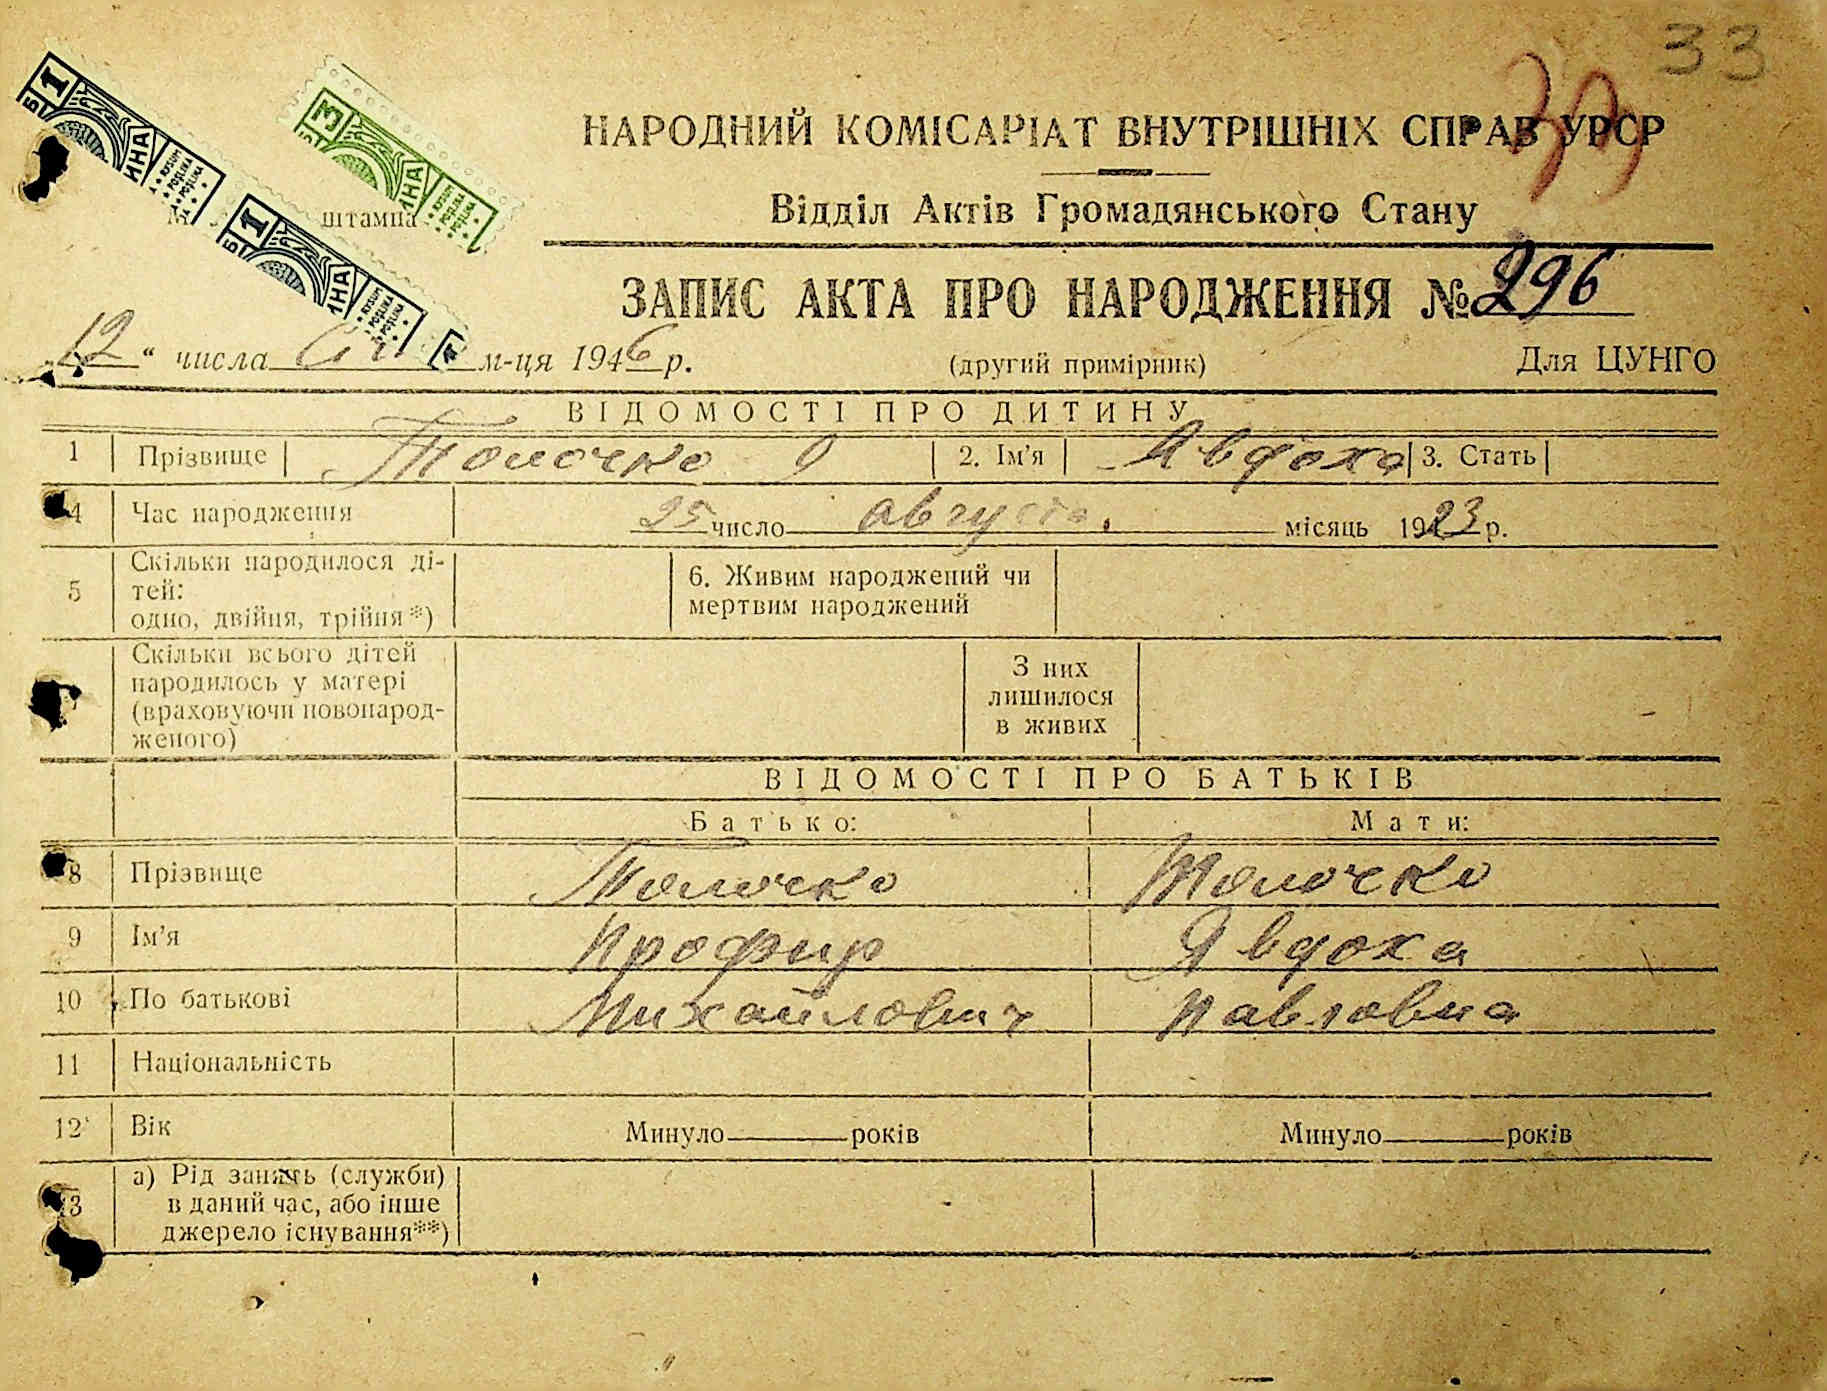 33
НАРОДНИЙ КОМІСАРІАТ ВНУТРІШНІХ СПРАВ УРСР
Відділ Актів Громадянського Стану
штампа
ЗАПИС АКТА ПРО НАРОДЖЕННЯ № 296
12 “ числа м-ця 1946 р. (другий примірник) Для ЦУНГО
ВІДОМОСТІ ПРО ДИТИНУ
1 Прізвище Толочко 2. Ім’я Явдоха 3. Стать
4 Час народження 25 число августа місяць 1923 р.
5 Скільки народилося ді-
тей:
одно, двійня, трійня*)
6. Живим народжений чи
мертвим народжений
Скільки всього дітей
народилось у матері
(враховуючи новонарод-
женого)
З них
лишилося
в живих
ВІДОМОСТІ ПРО БАТЬКІВ
Батько: Мати:
8 Прізвище Толочко Толочко
9 Ім’я Профир Явдоха
10 По батькові Михайлович Павловна
11 Національність
12 Вік Минуло років Минуло років
13 а) Рід занять (служби)
в даний час, або інше
джерело існування**)